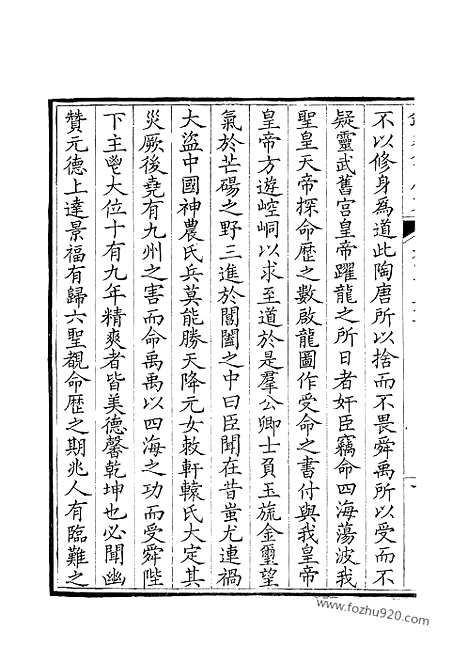 不以修身為道此陶唐所以捨而不畏舜禹所以受而不
疑靈武舊宫皇帝躍龍之所日者奸臣竊命四海蕩波我
聖皇天帝探命歴之數啟龍圖作受命之書付與我皇帝
皇帝方遊崆峒以求至道於是羣公卿士負玉旒金璽望
氣於芒碭之野三進於閶闔之中曰臣聞在昔蚩尤連禍
大盜中國神農氏兵莫能勝天降元女敕軒轅氏大定其
災厥後堯有九州之害而命禹禹以四海之功而受舜陛
下主鬯大位十有九年精爽者皆美德馨乾坤也必聞幽
贊元德上達景福有歸六聖覩命歴之期兆人有臨難之
www.fozhu920.com